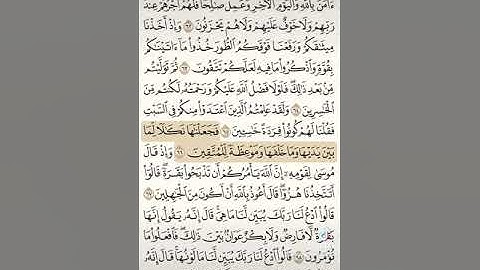 ءَامَنَ بِٱللَّهِ وَٱلۡيَوۡمِ ٱلۡأٓخِرِ وَعَمِلَ صَٰلِحٗا فَلَهُمۡ أَجۡرُهُمۡ عِندَ
رَبِّهِمۡ وَلَا خَوۡفٌ عَلَيۡهِمۡ وَلَا هُمۡ يَحۡزَنُونَ ٦٢ وَإِذۡ أَخَذۡنَا
مِيثَٰقَكُمۡ وَرَفَعۡنَا فَوۡقَكُمُ ٱلطُّورَ خُذُواْ مَآ ءَاتَيۡنَٰكُم
بِقُوَّةٖ وَٱذۡكُرُواْ مَا فِيهِ لَعَلَّكُمۡ تَتَّقُونَ ٦٣ ثُمَّ تَوَلَّيۡتُم
مِّنۢ بَعۡدِ ذَٰلِكَۖ فَلَوۡلَا فَضۡلُ ٱللَّهِ عَلَيۡكُمۡ وَرَحۡمَتُهُۥ لَكُنتُم مِّنَ
ٱلۡخَٰسِرِينَ ٦٤ وَلَقَدۡ عَلِمۡتُمُ ٱلَّذِينَ ٱعۡتَدَوۡاْ مِنكُمۡ فِي ٱلسَّبۡتِ
فَقُلۡنَا لَهُمۡ كُونُواْ قِرَدَةً خَٰسِـِٔينَ ٦٥ فَجَعَلۡنَٰهَا نَكَٰلٗا لِّمَا
بَيۡنَ يَدَيۡهَا وَمَا خَلۡفَهَا وَمَوۡعِظَةٗ لِّلۡمُتَّقِينَ ٦٦ وَإِذۡ قَالَ
مُوسَىٰ لِقَوۡمِهِۦٓ إِنَّ ٱللَّهَ يَأۡمُرُكُمۡ أَن تَذۡبَحُواْ بَقَرَةٗۖ قَالُوٓاْ
أَتَتَّخِذُنَا هُزُوٗاۖ قَالَ أَعُوذُ بِٱللَّهِ أَنۡ أَكُونَ مِنَ ٱلۡجَٰهِلِينَ ٦٧
قَالُواْ ٱدۡعُ لَنَا رَبَّكَ يُبَيِّن لَّنَا مَا هِيَۚ قَالَ إِنَّهُۥ يَقُولُ إِنَّهَا
بَقَرَةٞ لَّا فَارِضٞ وَلَا بِكۡرٌ عَوَانُۢ بَيۡنَ ذَٰلِكَۖ فَٱفۡعَلُواْ مَا
تُؤۡمَرُونَ ٦٨ قَالُواْ ٱدۡعُ لَنَا رَبَّكَ يُبَيِّن لَّنَا مَا لَوۡنُهَاۚ قَالَ إِنَّهُۥ